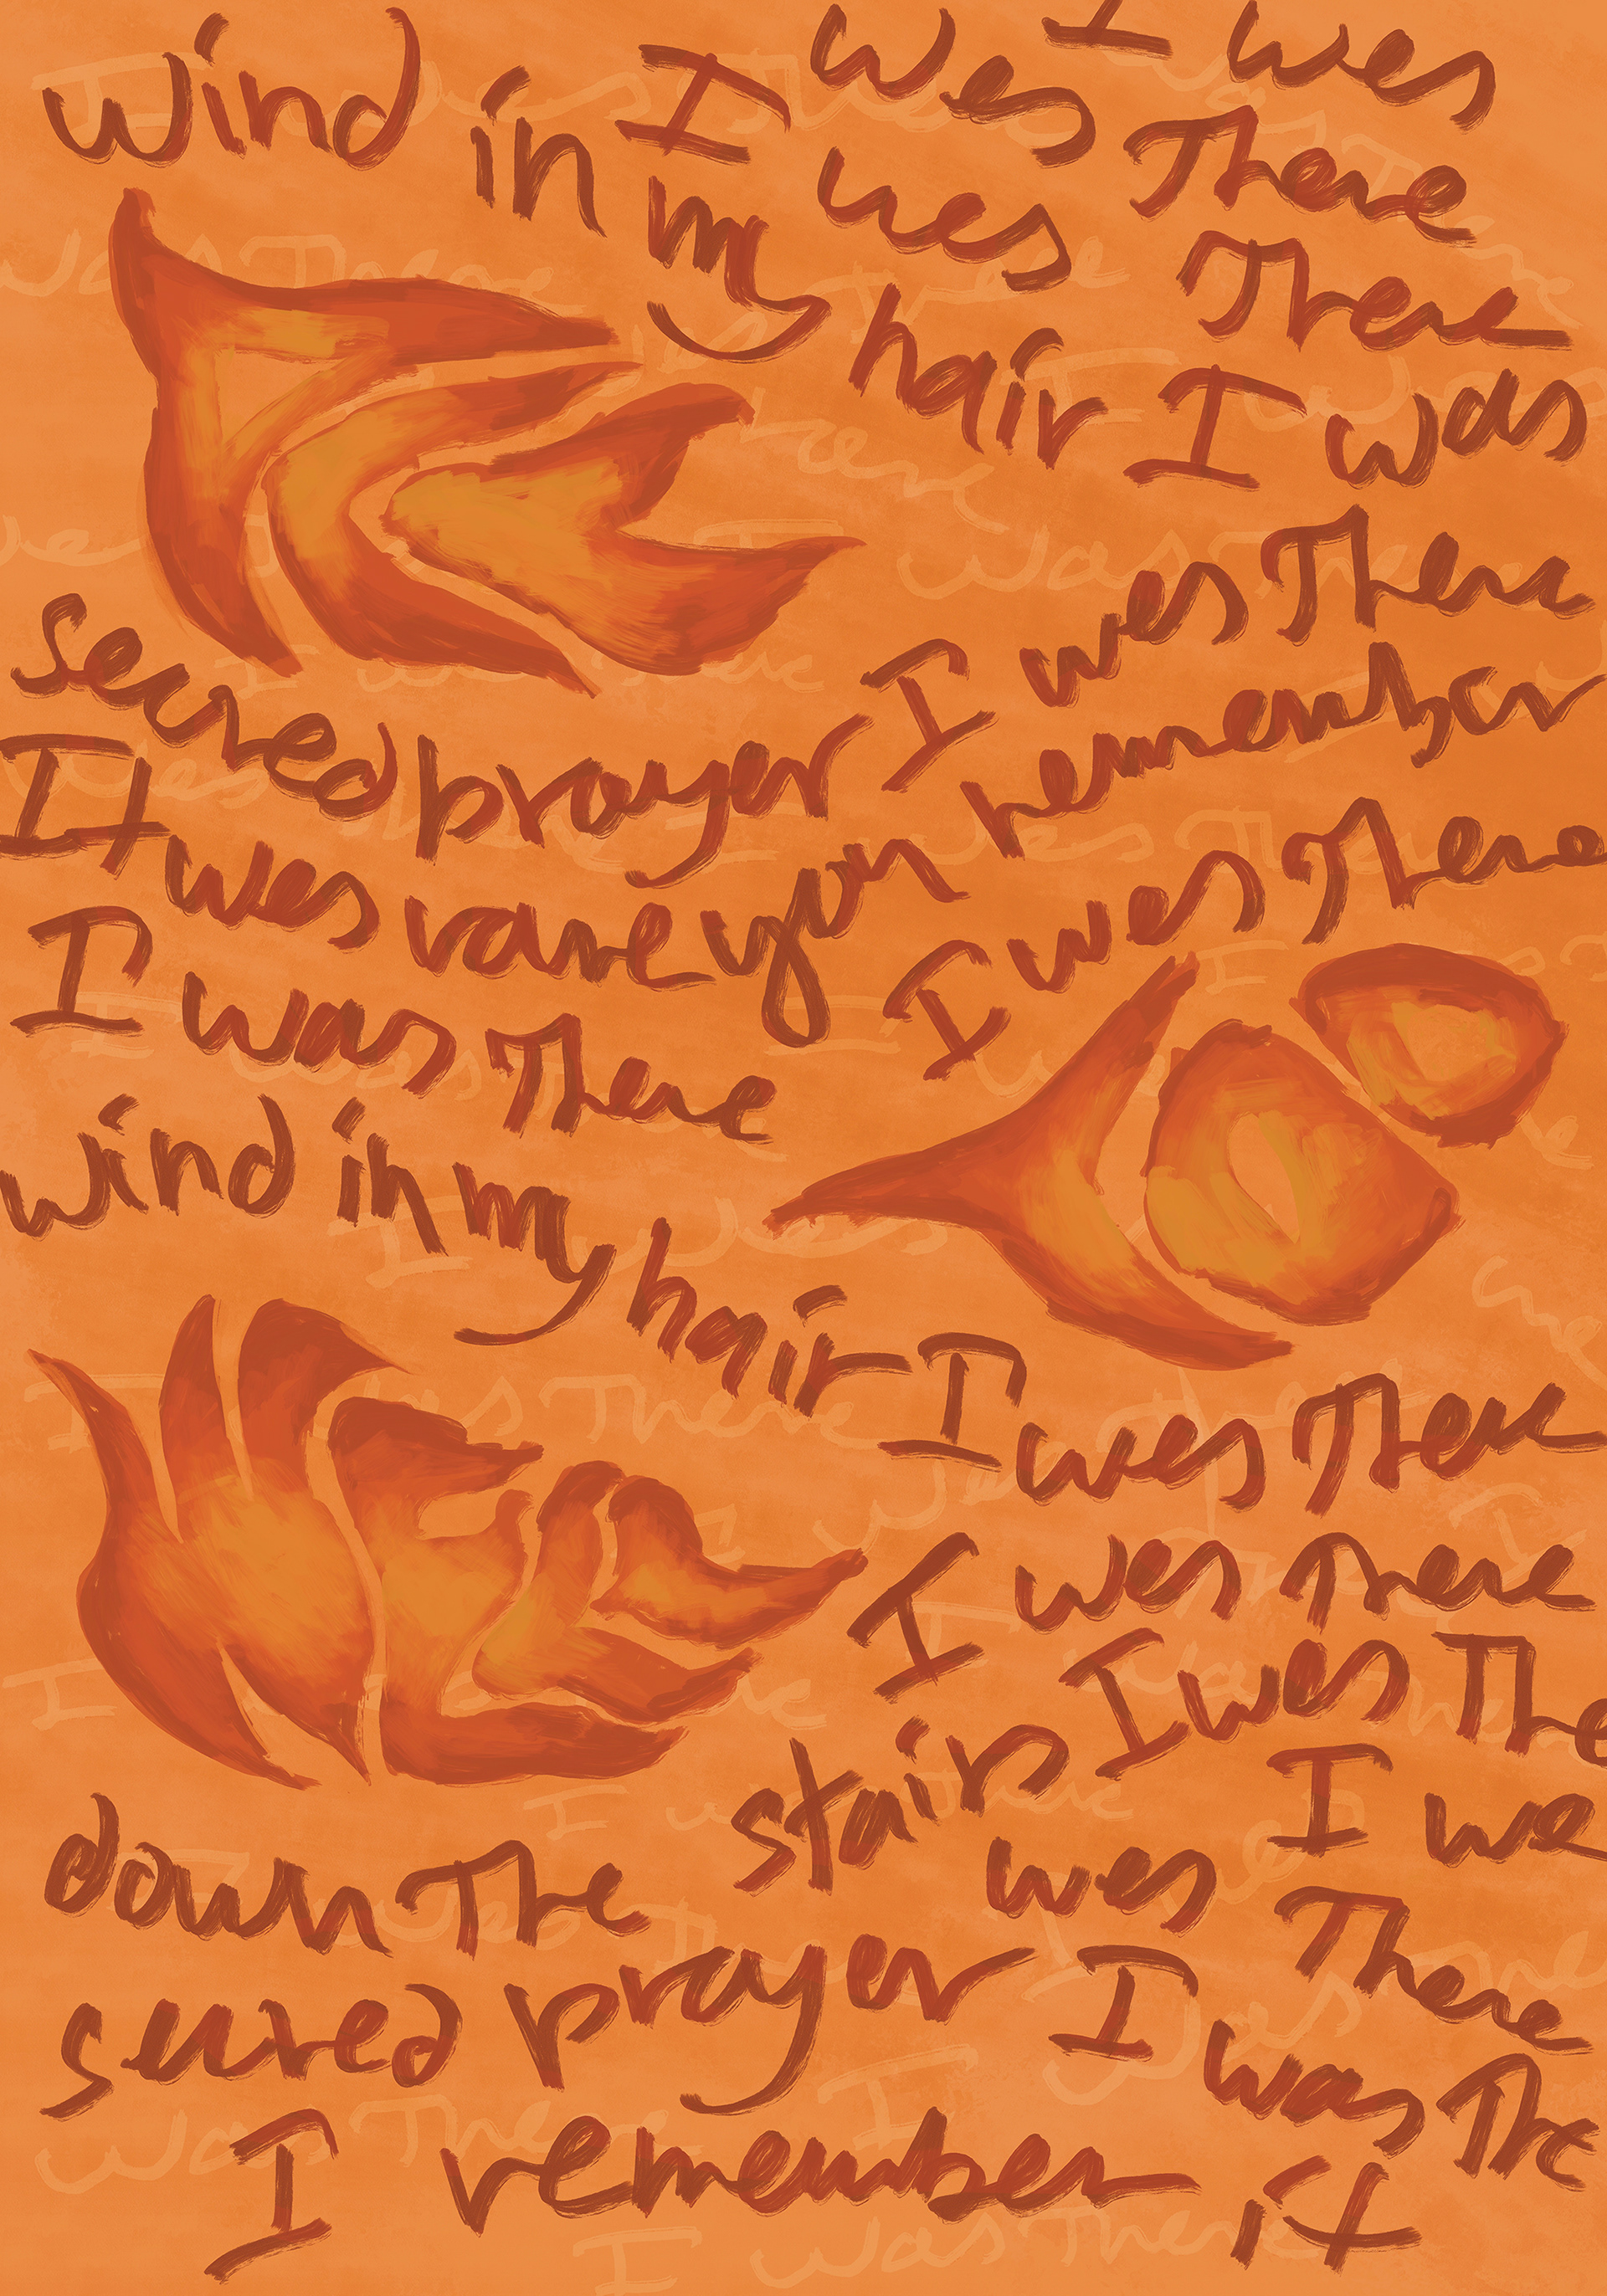 I was
I was There
wind in my hair I was
I was There
There
sacred prayer I was There
It was rare you remember
I was There
I was There
wind in my hair I was There
I was There
I was The
down The stairs
I wa
was There
sacred prayer I was The
I remember it